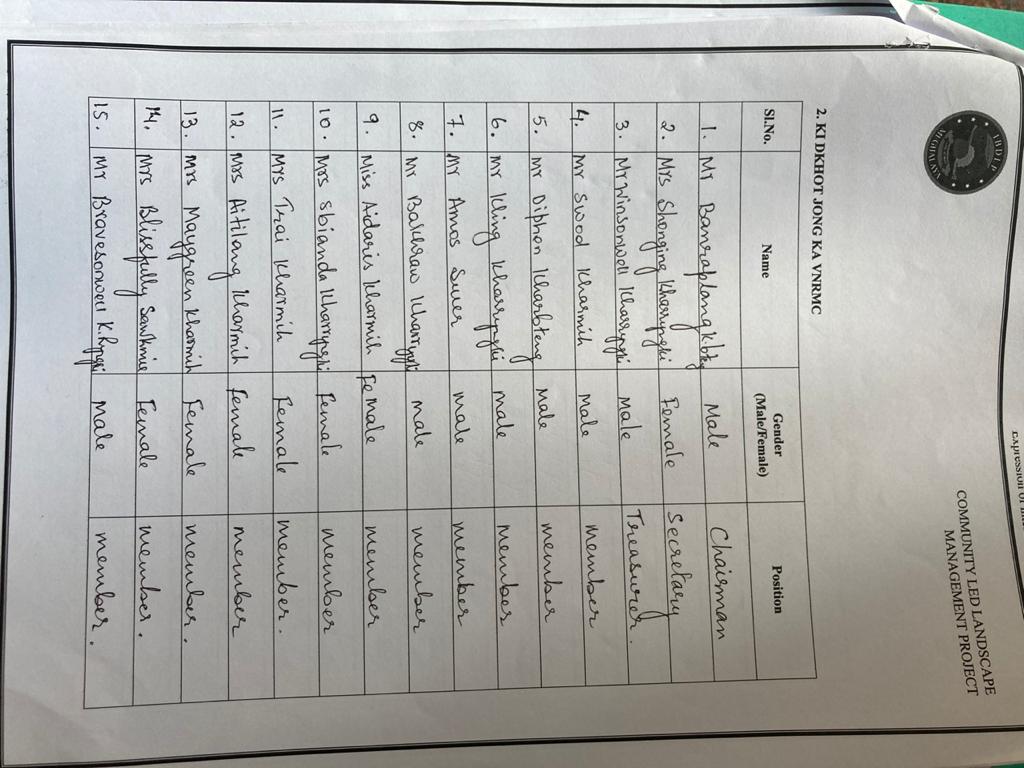 COMMUNITY LED LANDSCAPE
MANAGEMENT PROJECT
2. KI DKHOT JONG KA VNRMC
Sl.No. Name Gender (Male/Female) Position
1. Mr Banraplang Male Chairman
2. Mrs Shonging Kharrngi Female Secretary
3. Mr Winsonwell Kharrngi Male Treasurer.
4. Mr Swod Kharmih Male member
5. Mr Diphon Kharbteng Male member
6. Mr Kling Kharryngki male member
7. Mr Amos Suer male member
8. Mr male member
9. Miss Aidoris Kharmih Female member
10. Mrs Sbianda Female member
11. Mrs Trai Kharmih Female member.
12. Mrs Aitilang Kharmih Female member
13. Mrs Maygreen Kharmih Female member.
14. Mrs Blissfully Sawkmie Female member.
15. Mr Bravesonwell male member.